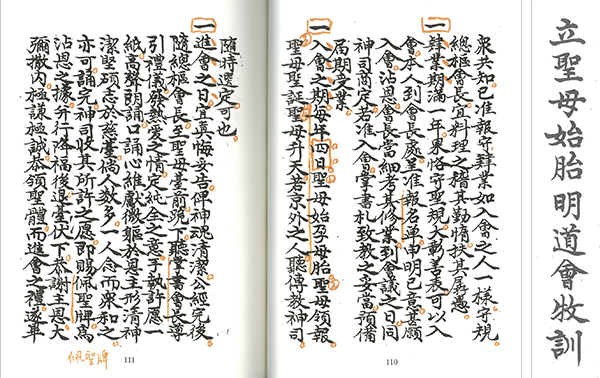 立聖母始胎明道會牧訓
衆共知已准報守肆業如入會之人一樣守規
總樞會長宜料理之稽其勤惰扶其孱懲
一 肆業期滿一年果恪守聖規大彰善表可以入
會本人到會長處呈准報名單申明已意其願
入會沾恩會長當細考其修業到會議之日同
神司商定若准入會掌書札致教之妥當預備
局期受業
一 入會之期每年四日聖母始孕母胎聖母領報
聖母聖誕聖母升天若京外之人聽傳教神司
110
隨時選定可也
一 進會之日宜眞悔妥告俾神魂清潔公經完後
隨總樞會長至聖母臺前跪下聽掌書會長導
引禮儀發熱愛之情定純全之意手執許愿一
紙高聲朗誦口誦心維獻微軀於恩主形清神
潔堅碩志於慈臺倘人數多一人念而衆和之
亦可誦完神司收其所許之愿即賜佩聖牌爲
沾恩之據并行降福後退臺伏下恭謝主恩大
彌撒內極謙極誠恭領聖體而進會之禮遂畢
111
佩聖牌